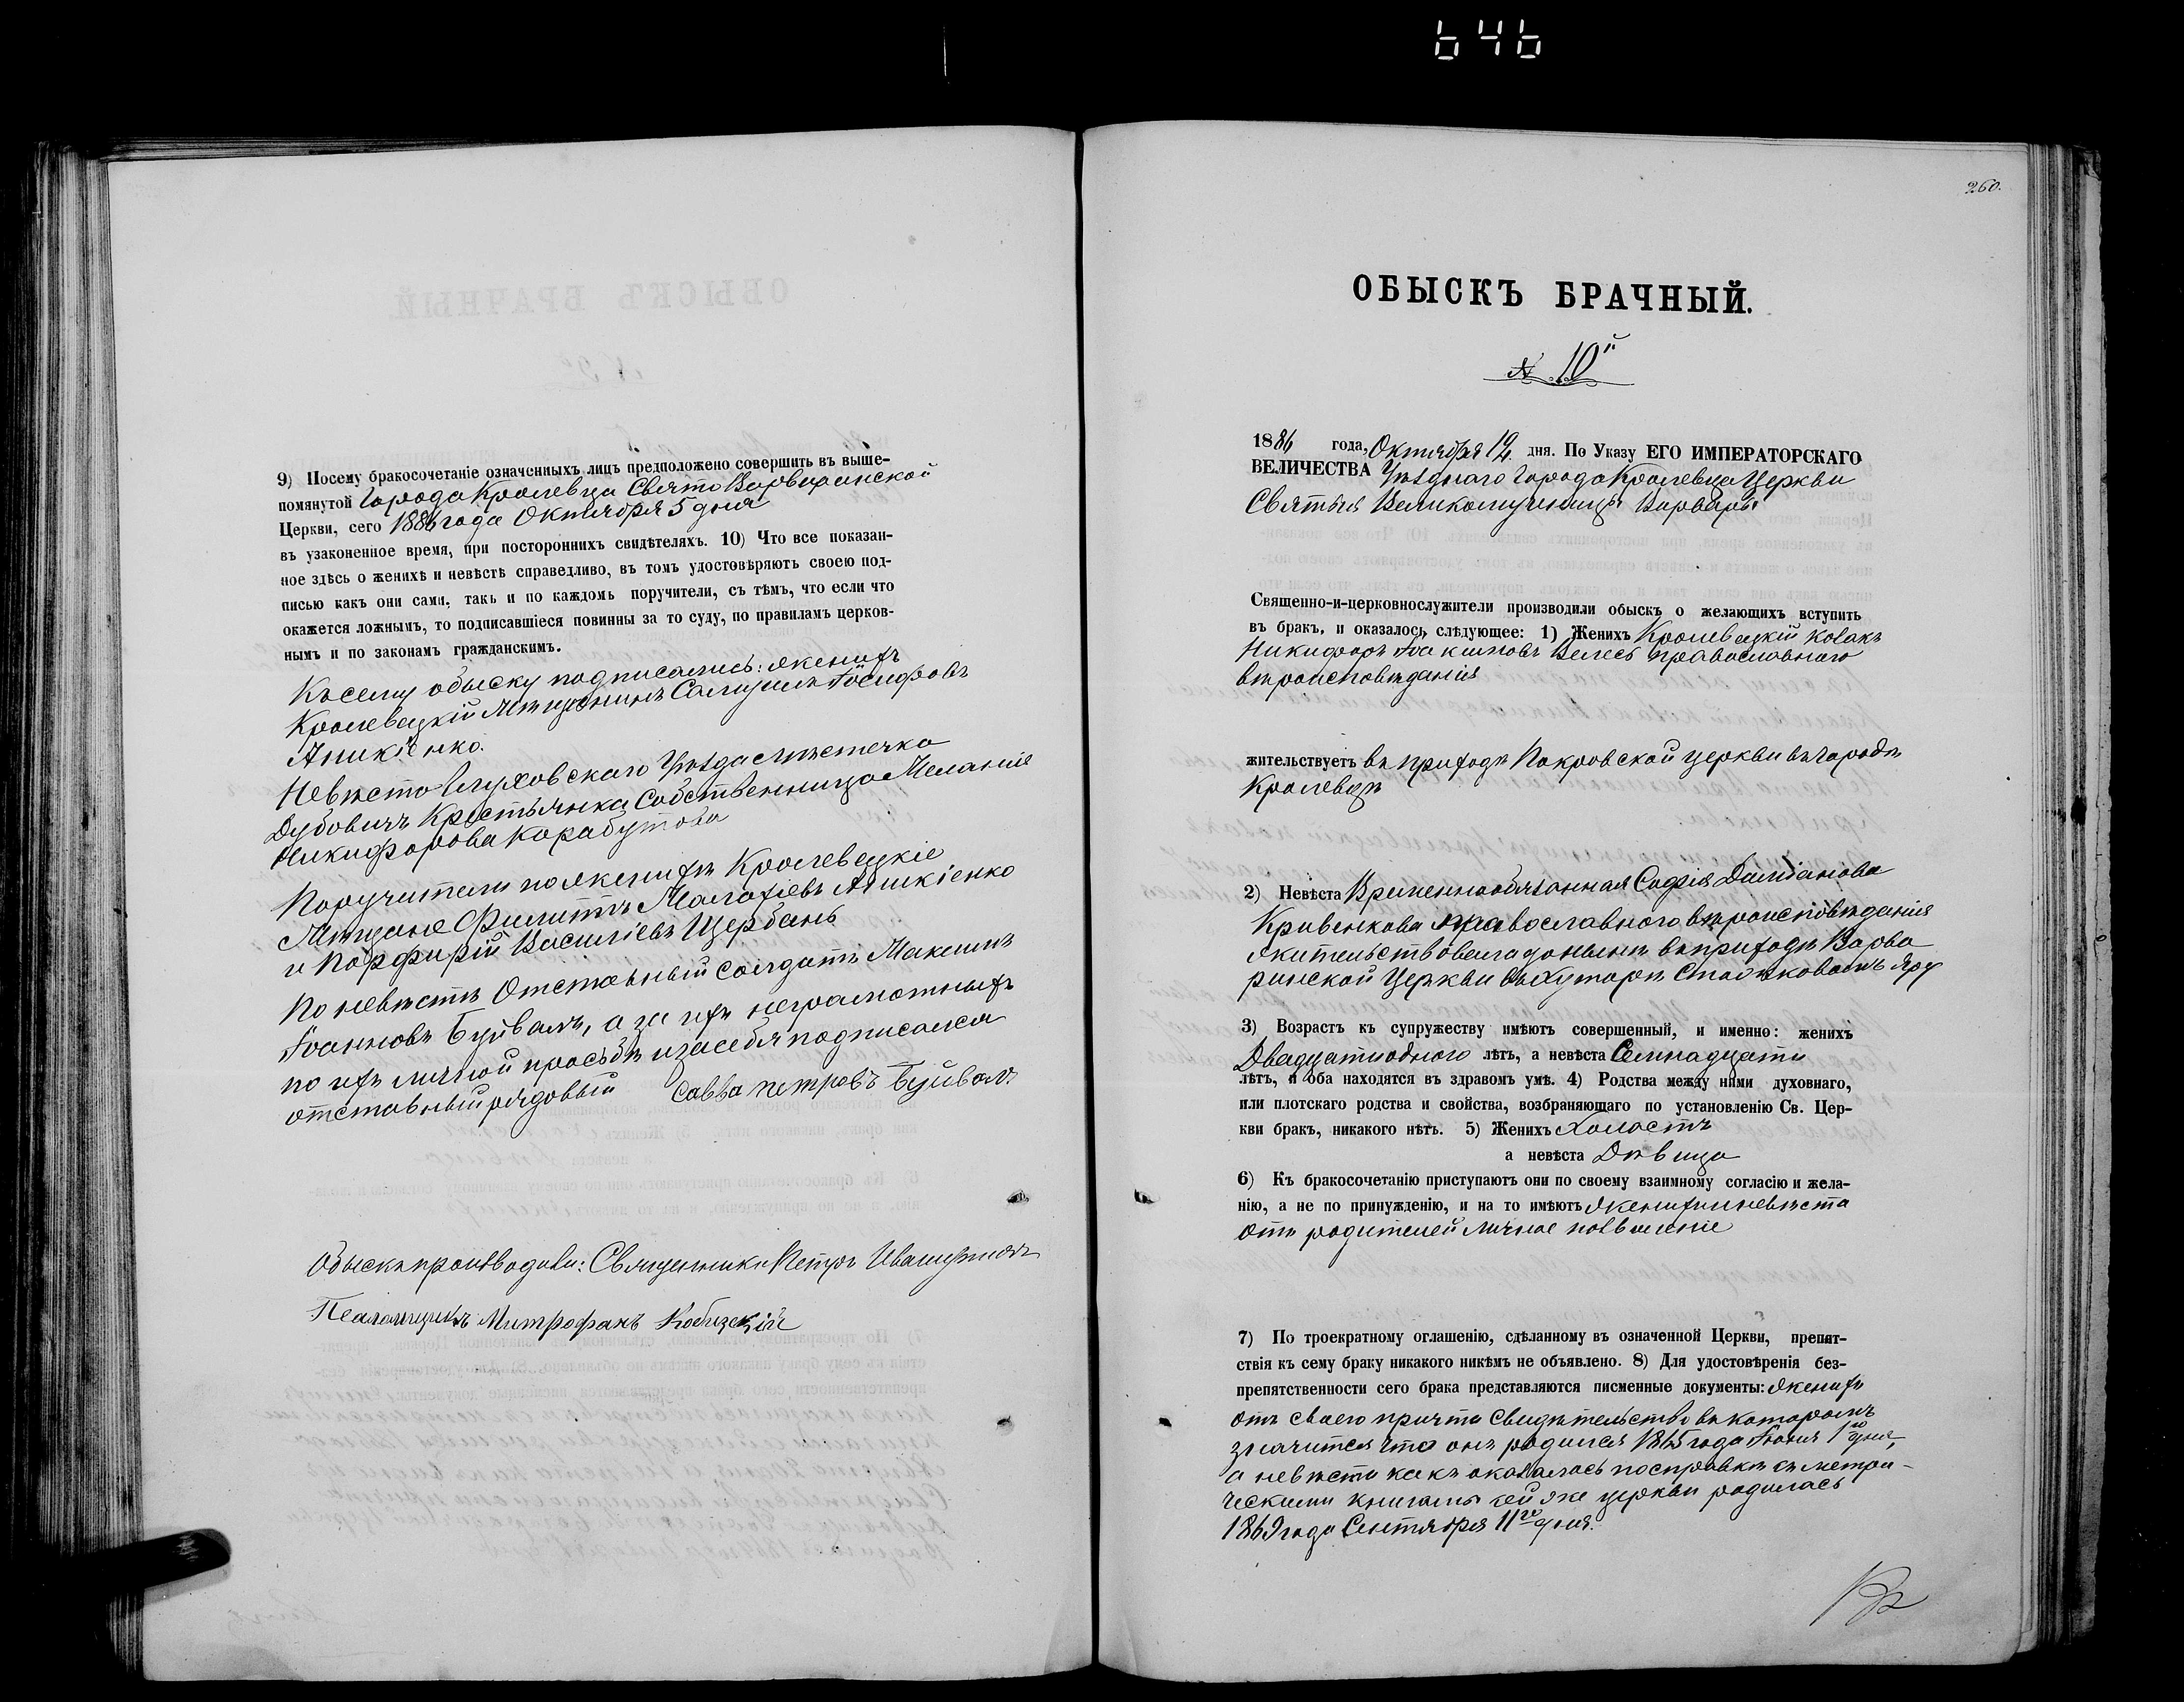 646
9) Посему бракосочетаніе означенныхъ лицъ предположено совершить въ выше-
помянутой Города Кролевца Свято Варваринской
Церкви, сего 1886 года Октября 5 дня
въ узаконенное время, при постороннихъ свидѣтеляхъ. 10) Что все показан-
ное здѣсь о женихѣ и невѣстѣ справедливо, въ томъ удостовѣряютъ своею под-
писью какъ они сами, такъ и по каждомъ поручители, съ тѣмъ, что если что
окажется ложнымъ, то подписавшіеся повинны за то суду, по правиламъ церков-
нымъ и по законамъ гражданскимъ.
Къ сему обыску подписались: женихъ
Кролевецкій Мѣщанинъ Самуилъ Іосифовъ
Аникіенко.
Невѣста Глуховскаго Уѣзда мѣстечка
Дубовичъ Крестьянка Собственница Меланія
Никифорова Карабутова
Поручители по женихѣ Кролевецкіе
Мѣщане Филиппъ Малахіевъ Аникіенко
и Порфирій Василіевъ Щербань
По невѣстѣ Отставный солдатъ Максимъ
Іоанновъ Буйвалъ, а за ихъ неграмотныхъ
по ихъ личной просьбѣ и за себя подписался
отставный рядовый Савва петровъ Буйвалъ
Обыскъ производили: Священникъ Петръ
Псаломщикъ Митрофанъ Кобизскій
260.
ОБЫСКЪ БРАЧНЫЙ.
№ 10й
1886 года, Октября 12 дня. По Указу ЕГО ИМПЕРАТОРСКАГО
ВЕЛИЧЕСТВА Уѣзднаго Города Кролевца Церкви
Святыя Великомученицы Варвары
Священно-и-церковнослужители производили обыскъ о желающихъ вступить
въ бракъ, и оказалось слѣдующее: 1) Женихъ Кролевецкій козакъ
Никифоръ Іоакимовъ Велесъ православнаго
вѣроисповѣданія
жительствуетъ въ приходѣ Покровской церкви въ городѣ
Кролевцѣ
2) Невѣста Временнообязанная Софія Даміанова
Кривенкова православнаго вѣроисповѣданія
жительствовала донынѣ въ приходѣ Варва
ринской Церкви въ Хуторѣ Яру
3) Возрастъ къ супружеству имѣютъ совершенный, и именно: женихъ
Двадцати одного лѣтъ, а невѣста Семнадцати
лѣтъ, и оба находятся въ здравомъ умѣ. 4) Родства между ними духовнаго,
или плотскаго родства и свойства, возбраняющаго по установленію Св. Цер-
кви бракъ, никакого нѣтъ. 5) Женихъ Холостъ
а невѣста Дѣвица
6) Къ бракосочетанію приступаютъ они по своему взаимному согласію и жела-
нію, а не по принужденію, и на то имѣютъ женихъ и невѣста
отъ родителей личное позволеніе
7) По троекратному оглашенію, сдѣланному въ означенной Церкви, препят-
ствія къ сему браку никакого никѣмъ не объявлено. 8) Для удостовѣренія без-
препятственности сего брака представляются писменные документы: женихъ
отъ своего причта Свидѣтельство въ которомъ
значится что онъ родился 1865 года Іюня 1го дня,
а невѣста какъ оказалось по справкѣ съ метри-
ческими книгами сей же церкви родилась
1869 года Сентября 11го дня.